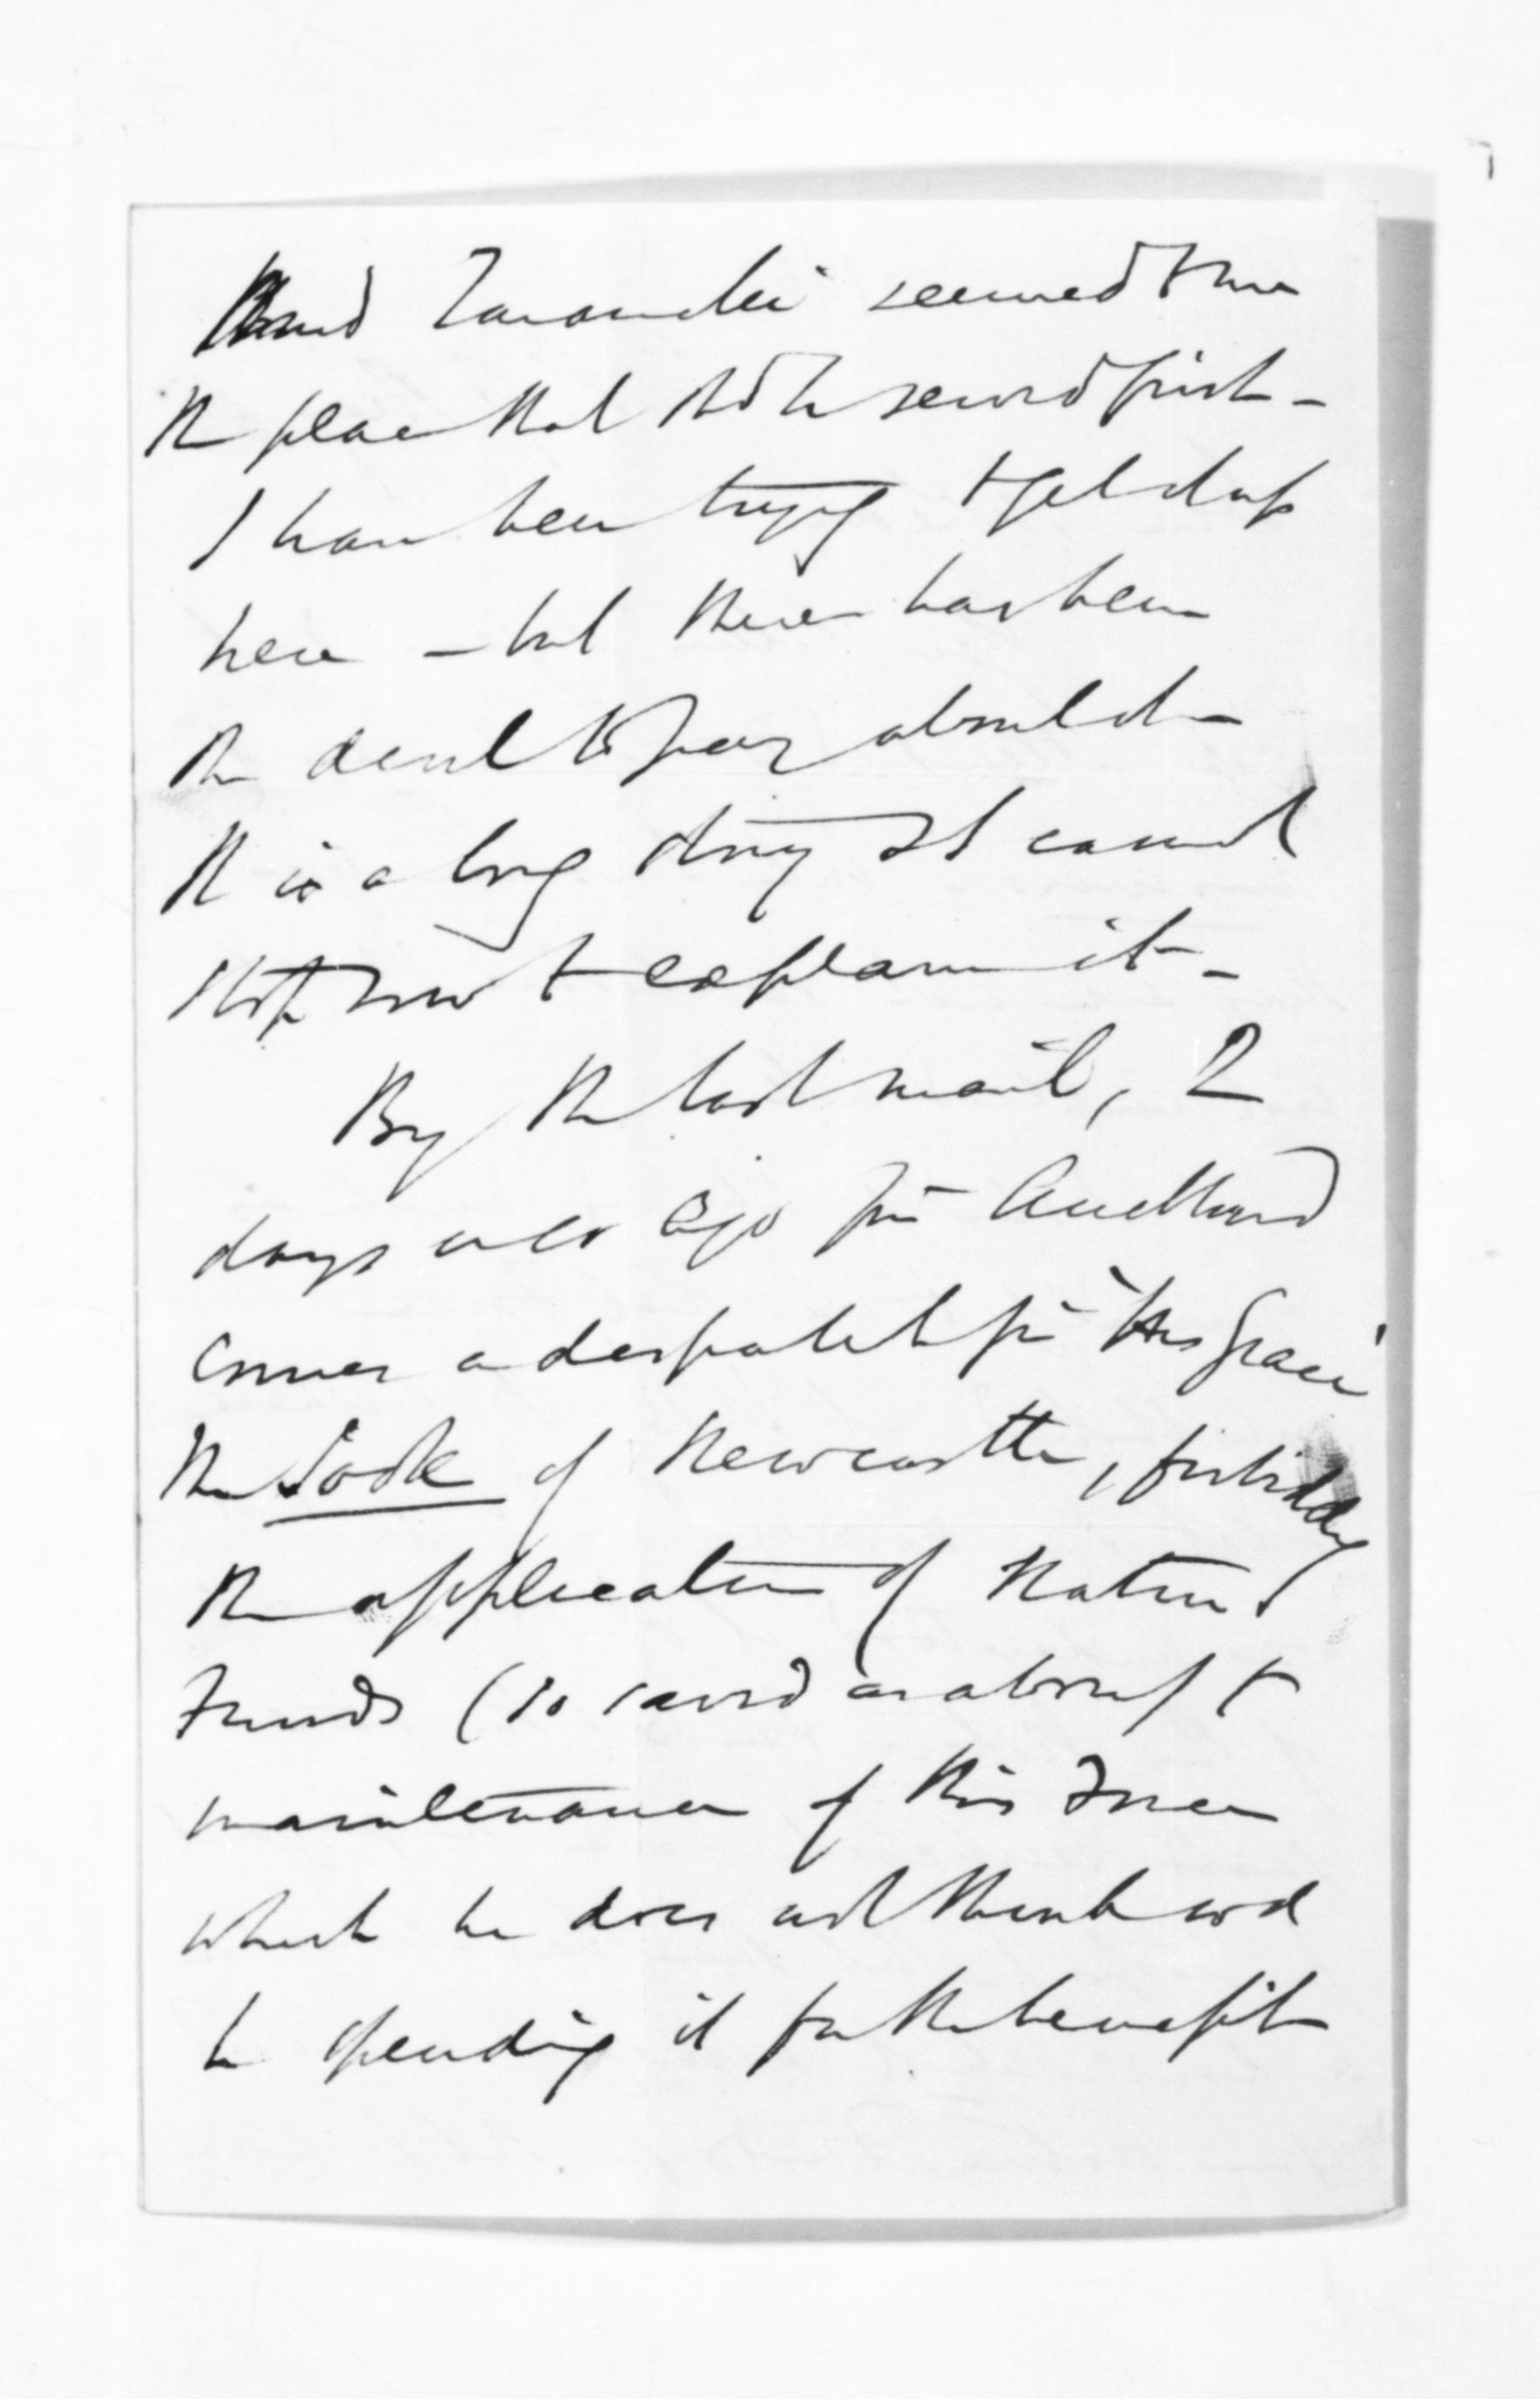 and Taranaki seemed to me
the place that shd be served first -
I have been trying to get
here - but there has been
the devil to pay about it -
It is a long story & I cannot
stop now to explain it -
By the last mail, 2
days ago fm Auckland
comes a despatch fm "His Grace"
the Dook of Newcastle, forbidding
the application of
Funds (so saved as above) to
maintenance of this Force
which he does not think wd
be spending it for the benefit